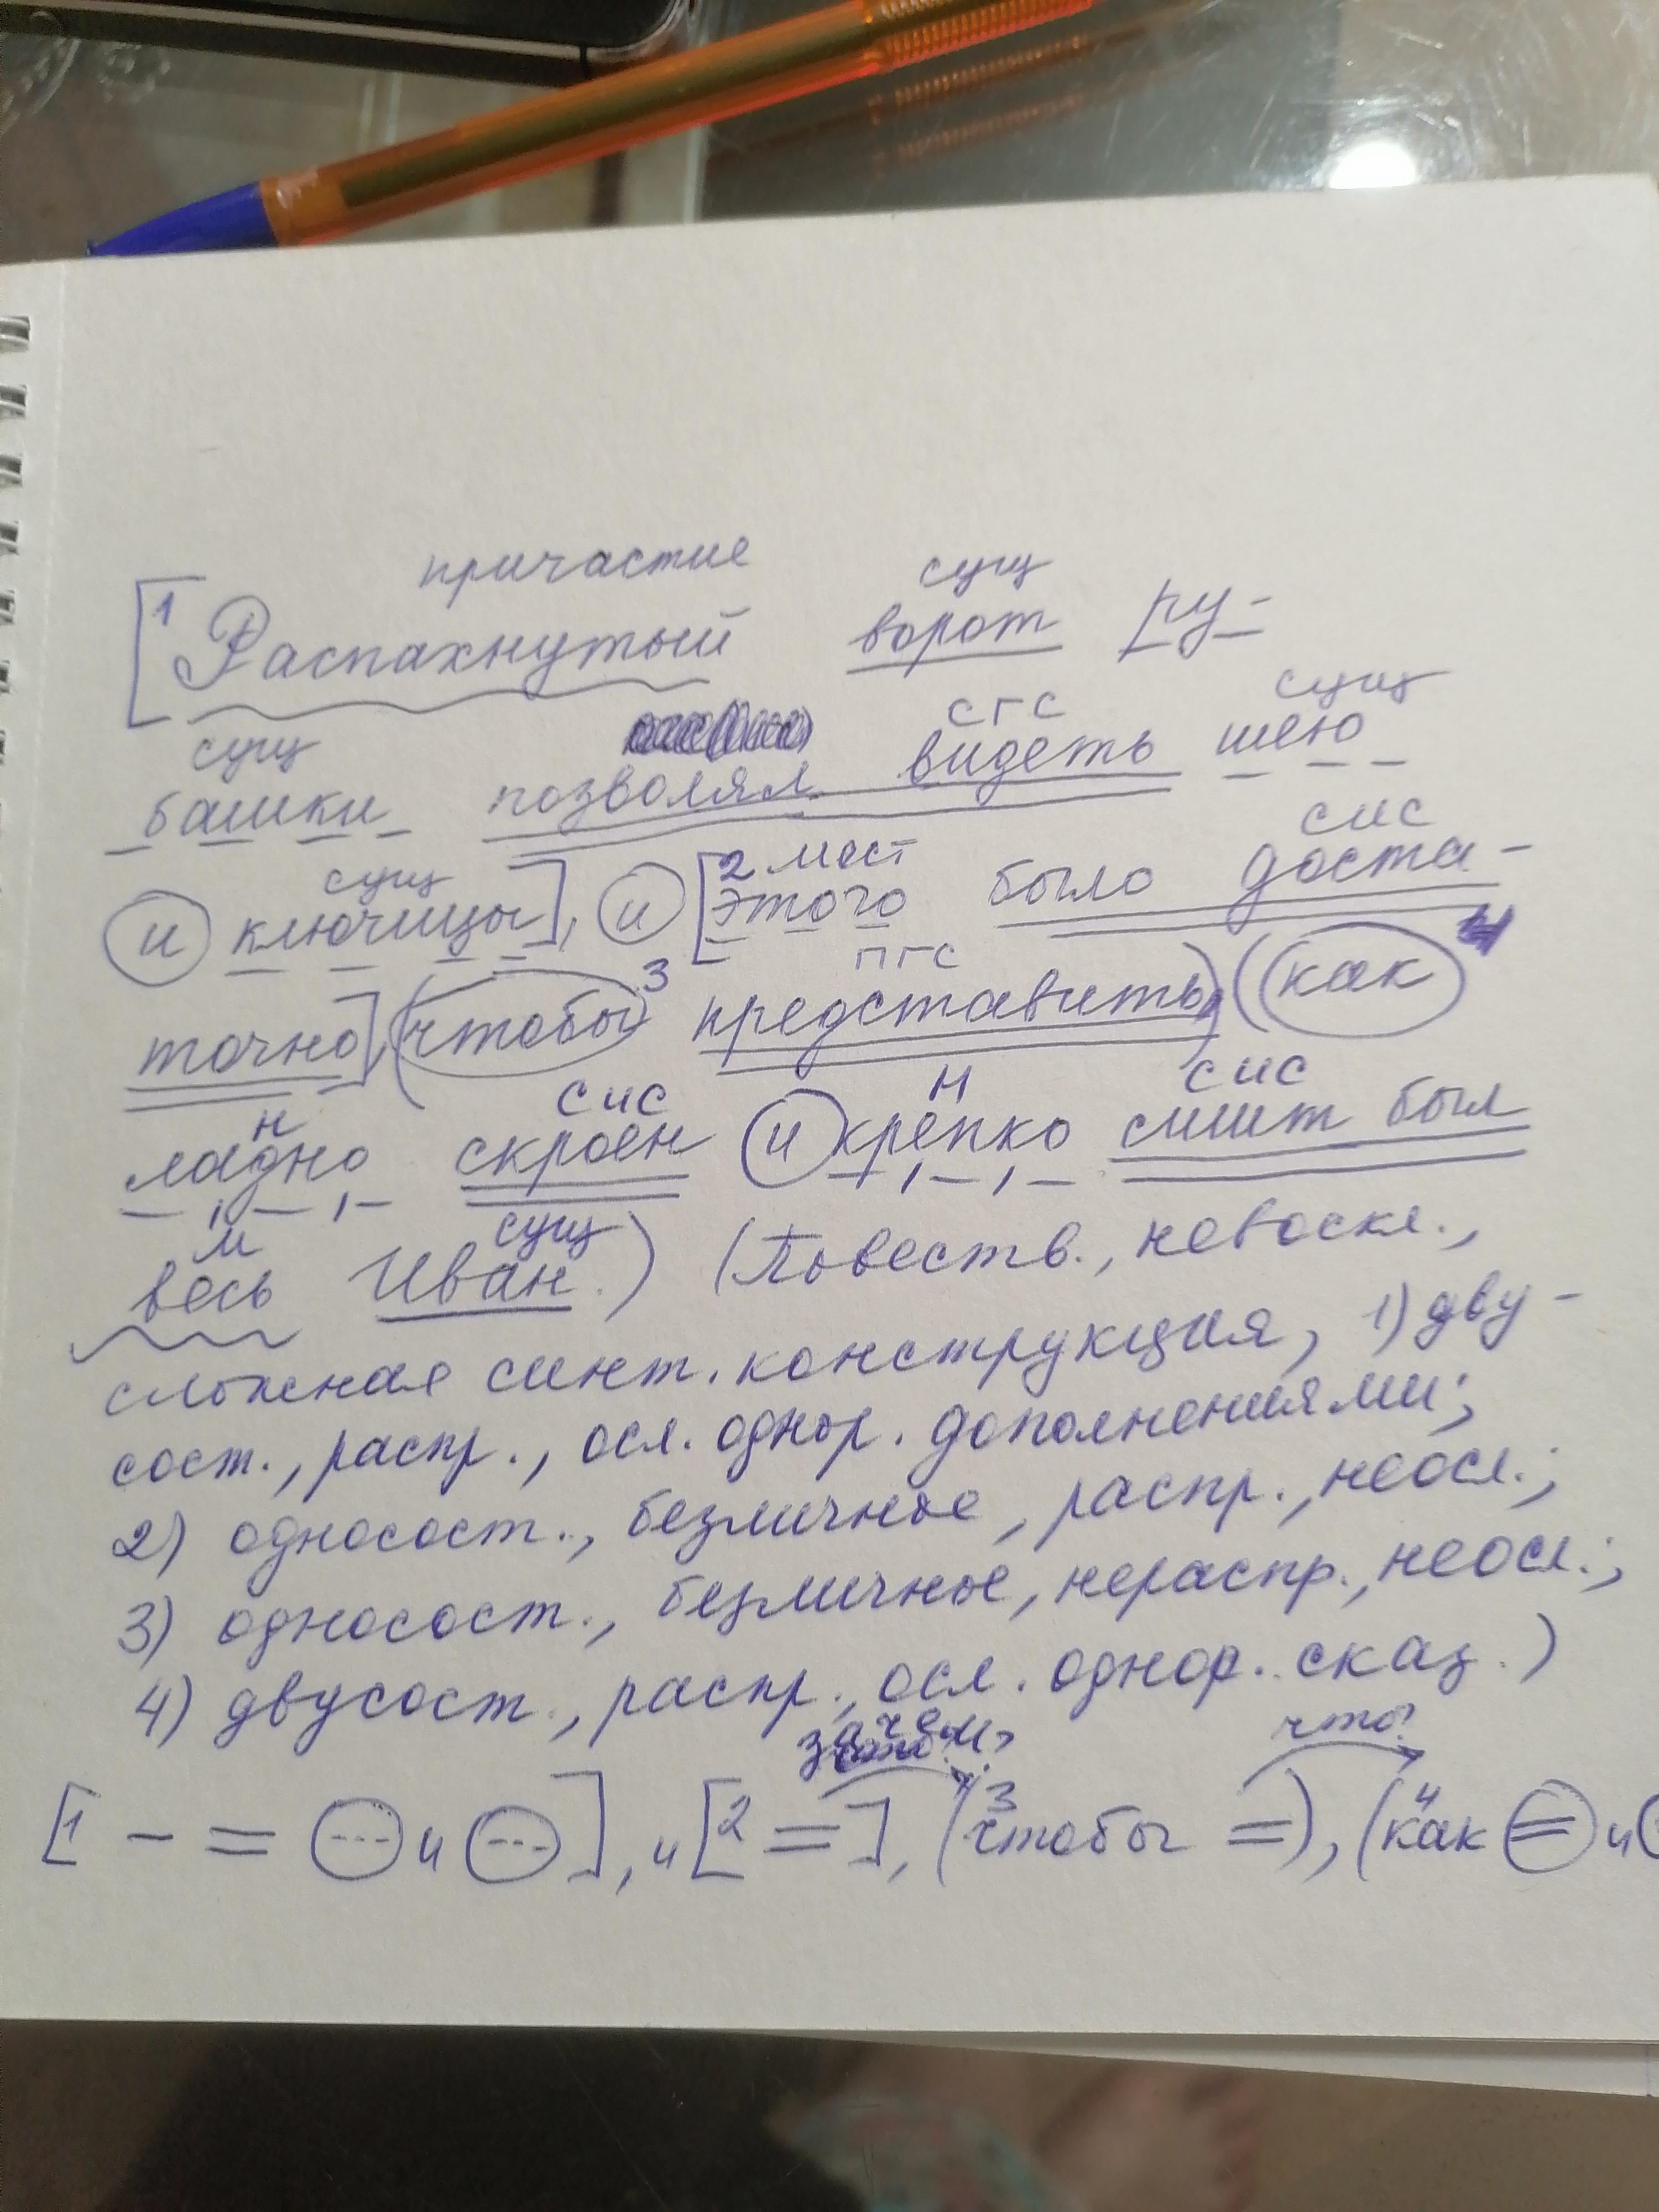 причастие сущ
[1 Распахнутый ворот ру-
сущ сгс сущ
башки позволял видеть шею
сущ 2 мест сис
и ключицы], и [этого было доста-
3 пгс 4
точно], (чтобы представить), (как
н сис н сис
ладно скроен и крепко сшит был
м сущ
весь Иван.) (Повеств., невоскл.,
сложная синт. конструкция, 1) дву-
сост., распр., осл. однор. дополнениями;
2) односост., безличное, распр., неосл.;
3) односост., безличное, нераспр., неосл.;
4) двусост., распр., осл. однор. сказ.)
зачем? что?
[1 – = и ], и [2 = ], (3 чтобы =), (4 как = и